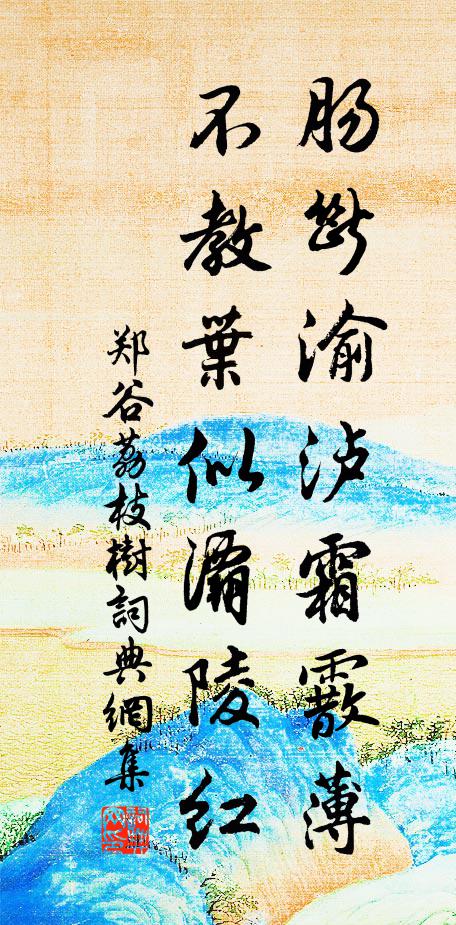 肠断渝泸霜霰薄
不教葉似灞陵红
郑谷荔枝樹詞典網集